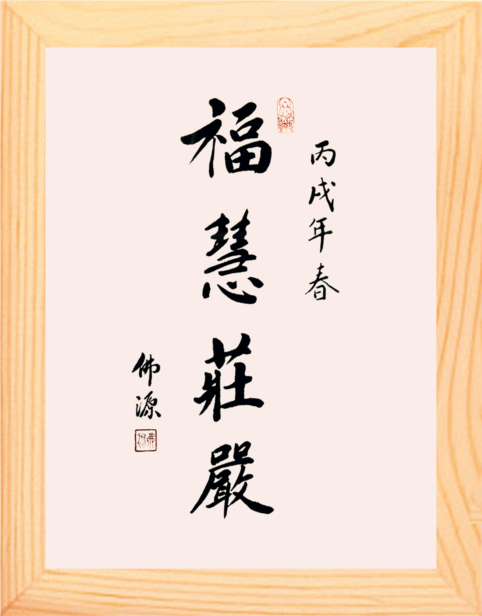 丙戌年春
福慧莊嚴
佛源